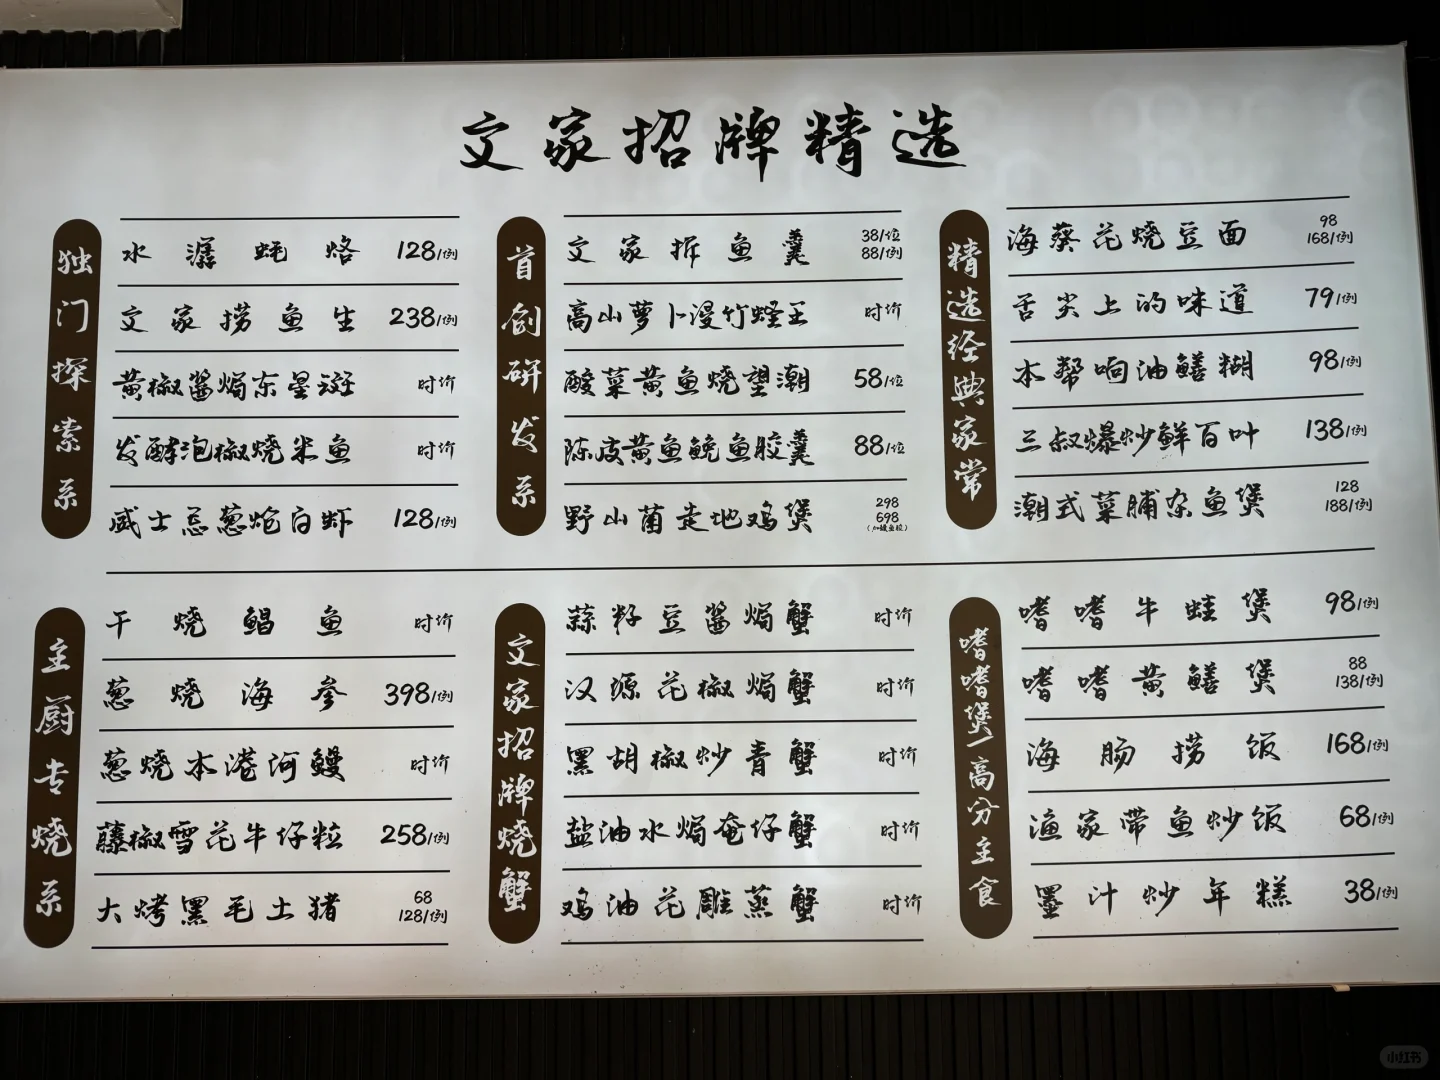 文家招牌精选
独门探索系
水潺蚝烙 128/例
文家捞鱼生 238/例
黄椒酱焗东星斑 时价
发酵泡椒烧米鱼 时价
威士忌葱炝白虾 128/例
首创研发系
文家拆鱼羹 38/位 88/例
高山萝卜浸竹蛏王 时价
酸菜黄鱼烧望潮 58/位
陈皮黄鱼鮸鱼胶羹 88/位
野山菌走地鸡煲 298 698
精选经典家常
海葵花烧豆面 98 168/例
舌尖上的味道 79/例
本帮响油鳝糊 98/例
三叔爆炒鲜百叶 138/例
潮式菜脯杂鱼煲 128 188/例
主厨专烧系
干烧鲳鱼 时价
葱烧海参 398/例
葱烧本港河鳗 时价
藤椒雪花牛仔粒 258/例
大烤黑毛土猪 68 128/例
文家招牌烧蟹
蒜籽豆酱焗蟹 时价
汉源花椒焗蟹 时价
黑胡椒炒青蟹 时价
盐油水焗奄仔蟹 时价
鸡油花雕蒸蟹 时价
嗜嗜煲/高分主食
嗜嗜牛蛙煲 98/例
嗜嗜黄鳝煲 88 138/例
海肠捞饭 168/例
渔家带鱼炒饭 68/例
墨汁炒年糕 38/例
小红书